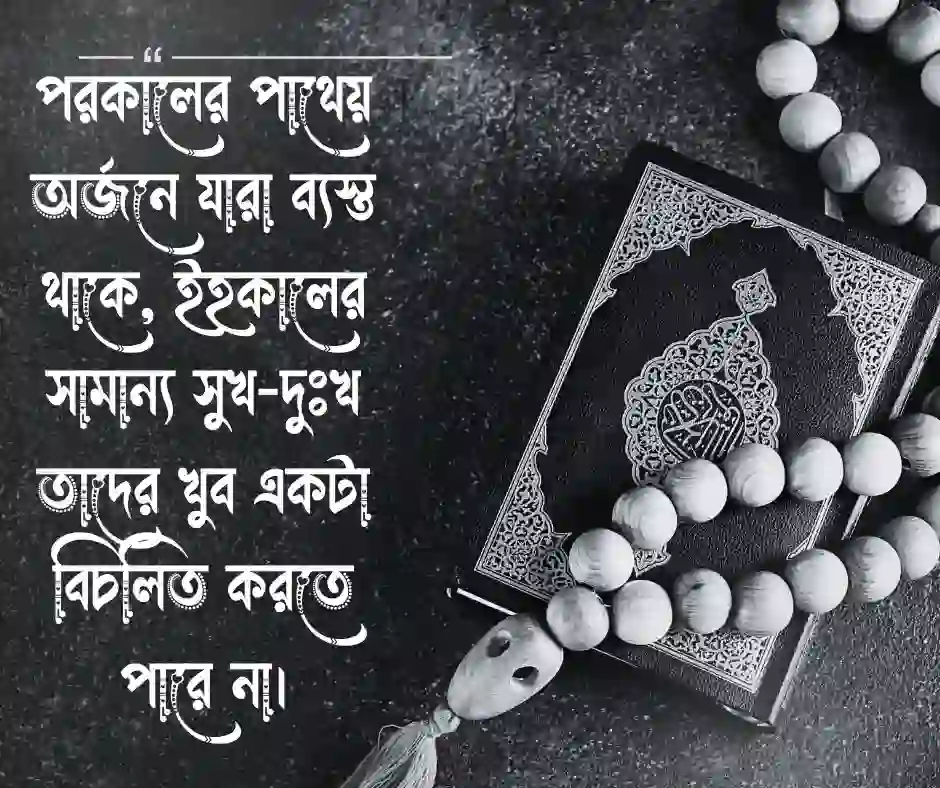 “
পরকালের পাথেয়
অর্জনে যারা ব্যস্ত
থাকে, ইহকালের
সামান্য সুখ-দুঃখ
তাদের খুব একটা
বিচলিত করতে
পারে না।